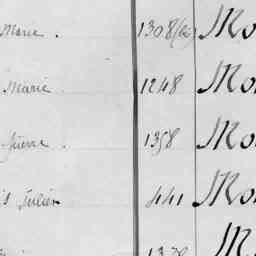 Marie . 1308(bis) Mo
Marie 1248 Mo
Pierre 1358 Mo
s Julien 441 Mo
M